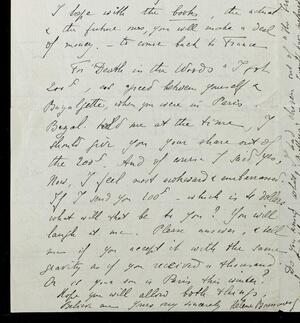 I hope with the books, the actual
& the future ones, you will make a deal
of money — to come back to France.
For "Death in the Woods" I got
200f, as agreed between yourself &
when you were in Paris.
told me at the time, I
should give you your share out of
the 200f. And of course I said yes,
Now, I feel awkward & embarrassed
If I send you 100f — which is 4 dollars
what will that be to you? You will
laugh at me. Please answer, & tell
me if you accept it with the same
gravity as if you received a thousand
Or is your son in Paris this winter?
Hope you will allow both things,
Believe me yours very sincerely